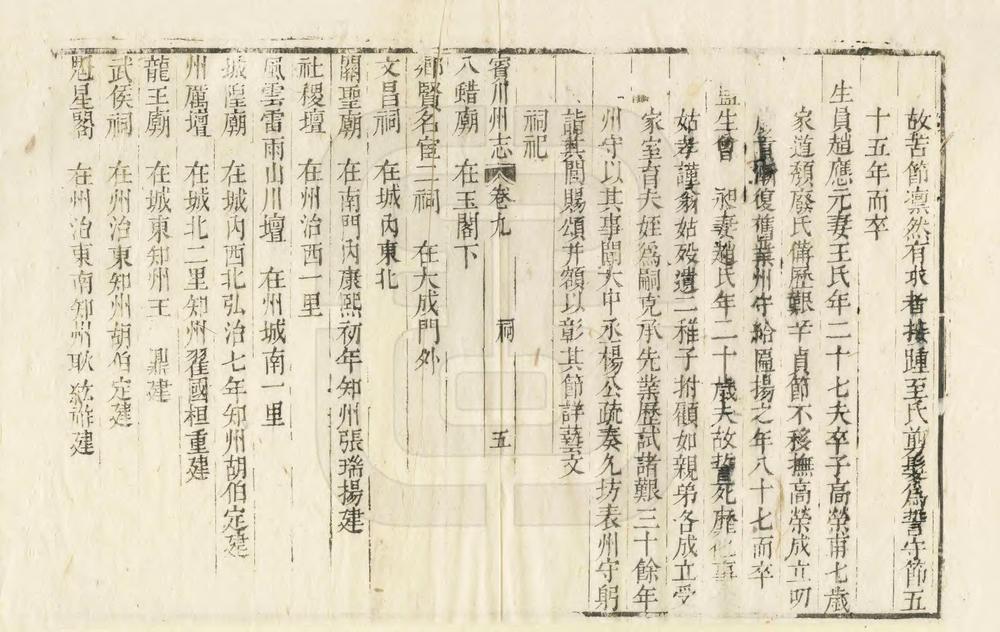 故苦節凛然有求者接踵至氏剪髮爲誓守節五
十五年而卒
生員趙應元妻王氏年二十七夫卒子高榮甫七歲
家道頹廢氏備歷艱辛貞節不移撫高榮成立
復舊業州守給匾揚之年八十七而卒
生曾 昶妻趙氏年二十歲夫故誓死靡他事
姑孝謹翁姑殁遺二稚子拊顧如親弟各成立受
家室育夫姪爲嗣克承先業歷試諸艱三十餘年
州守以其事聞大中丞楊公疏奏允坊表州守躬
詣其閭賜頒并額以彰其節詳藝文
祠祀
賓川州志 卷九 祠 五
八蜡廟 在玉閣下
鄉賢名宦二祠 在大成門外
文昌祠 在城內東北
關聖廟 在南門內康熙初年知州張瑞揚建
社稷壇 在州治西一里
風雲雷雨山川壇 在州城南一里
城隍廟 在城內西北弘治七年知州胡伯定建
州厲壇 在城北二里知州翟國桓重建
龍王廟 在城東知州王 鼎建
武侯祠 在州治東知州胡伯定建
魁星閣 在州治東南知州耿 建